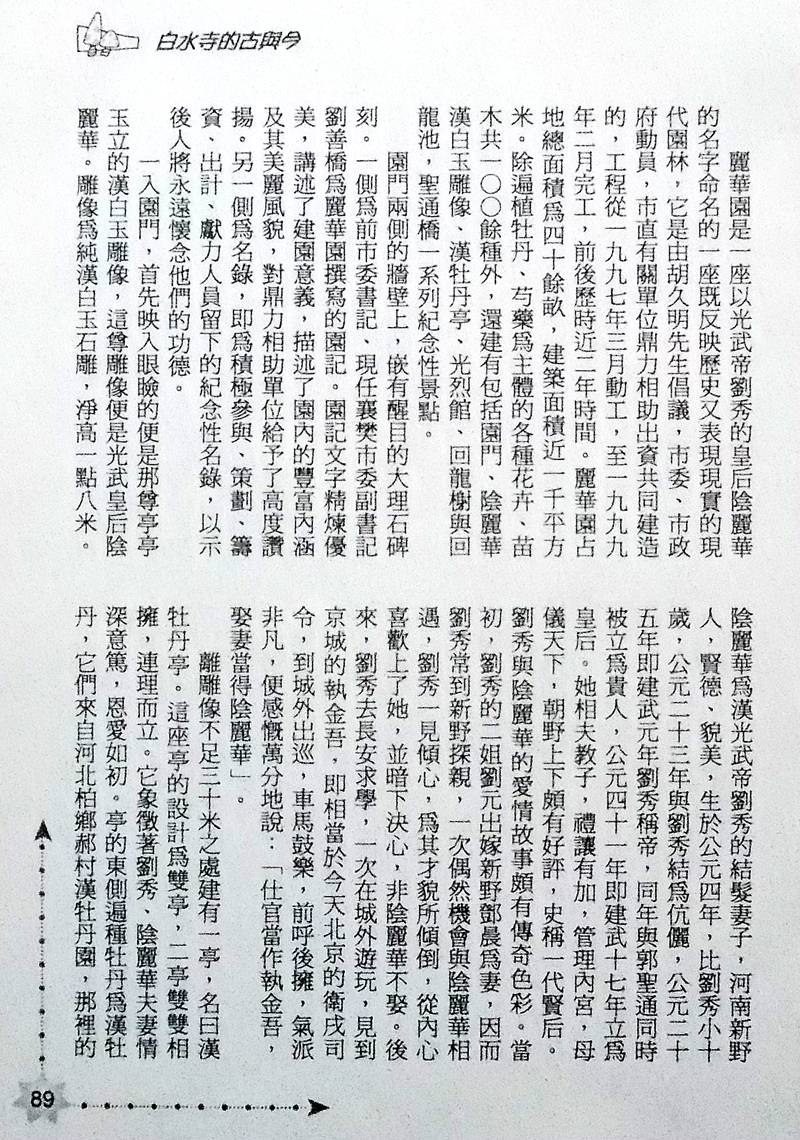 白水寺的古與今
麗華園是一座以光武帝劉秀的皇后陰麗華
的名字命名的一座既反映歷史又表現現實的現
代園林，它是由胡久明先生倡議，市委、市政
府動員，市直有關單位鼎力相助出資共同建造
的，工程從一九九七年三月動工，至一九九九
年二月完工，前後歷時近二年時間。麗華園占
地總面積爲四十餘畝，建築面積近一千平方
米。除遍植牡丹、芍藥爲主體的各種花卉、苗
木共一〇〇餘種外，還建有包括園門、陰麗華
漢白玉雕像、漢牡丹亭、光烈館、回龍榭與回
龍池，聖通橋一系列紀念性景點。
園門兩側的牆壁上，嵌有醒目的大理石碑
刻。一側爲前市委書記、現任襄樊市委副書記
劉善橋爲麗華園撰寫的園記。園記文字精煉優
美，講述了建園意義，描述了園內的豐富內涵
及其美麗風貌，對鼎力相助單位給予了高度讚
揚。另一側爲名錄，即爲積極參與、策劃、籌
資、出計、獻力人員留下的紀念性名錄，以示
後人將永遠懷念他們的功德。
一入園門，首先映入眼瞼的便是那尊亭亭
玉立的漢白玉雕像，這尊雕像便是光武皇后陰
麗華。雕像爲純漢白玉石雕，淨高一點八米。
陰麗華爲漢光武帝劉秀的結髮妻子，河南新野
人，賢德、貌美，生於公元四年，比劉秀小十
歲，公元二十三年與劉秀結爲伉儷，公元二十
五年即建武元年劉秀稱帝，同年與郭聖通同時
被立爲貴人，公元四十一年即建武十七年立爲
皇后。她相夫教子，禮讓有加，管理內宮，母
儀天下，朝野上下頗有好評，史稱一代賢后。
劉秀與陰麗華的愛情故事頗有傳奇色彩。當
初，劉秀的二姐劉元出嫁新野鄧晨爲妻，因而
劉秀常到新野探親，一次偶然機會與陰麗華相
遇，劉秀一見傾心，爲其才貌所傾倒，從內心
喜歡上了她，並暗下決心，非陰麗華不娶。後
來，劉秀去長安求學，一次在城外遊玩，見到
京城的執金吾，即相當於今天北京的衛戍司
令，到城外出巡，車馬鼓樂，前呼後擁，氣派
非凡，便感慨萬分地說：「仕官當作執金吾，
娶妻當得陰麗華」。
離雕像不足三十米之處建有一亭，名曰漢
牡丹亭。這座亭的設計爲雙亭，二亭雙雙相
擁，連理而立。它象徵著劉秀、陰麗華夫妻情
深意篤，恩愛如初。亭的東側遍種牡丹爲漢牡
丹，它們來自河北柏鄉郝村漢牡丹園，那裡的
89